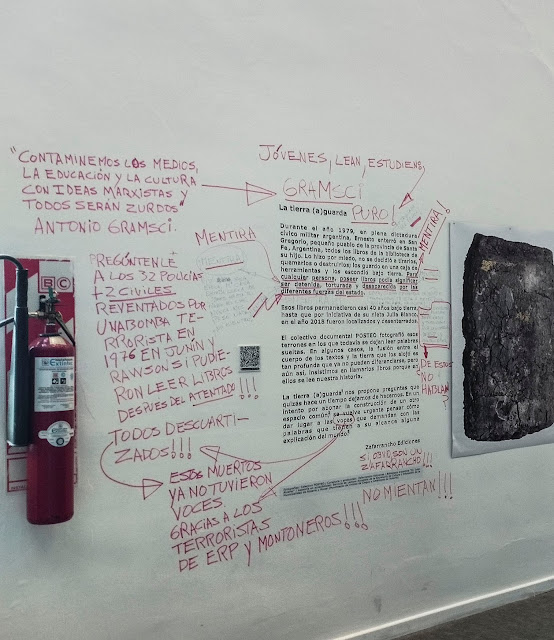 "CONTAMINEMOS LOS MEDIOS,
LA EDUCACIÓN Y LA CULTURA
CON IDEAS MARXISTAS Y
TODOS SERÁN ZURDOS"
ANTONIO GRAMSCI.
JÓVENES, LEAN, ESTUDIENS,
GRAMSCI
PURO!
La tierra (a)guarda
Durante el año 1979, en plena dictadura
cívico militar argentina, Ernesto enterró en San
Gregorio, pequeño pueblo de la provincia de Santa
Fe, Argentina, todos los libros de la biblioteca de
su hijo. Lo hizo por miedo, no se dedicó a tirarlos,
quemarlos o destruirlos; los guardó en una caja de
herramientas y los escondió bajo tierra. Para
cualquier persona, poseer libros podía significar
ser detenida, torturada y desaparecida por las
diferentes fuerzas del estado.
Esos libros permanecieron casi 40 años bajo tierra
hasta que por iniciativa de su nieta Julia Blanco,
en el año 2018 fueron localizados y desenterrados.
El colectivo documental POSTEO fotografió esos
terrones en los que todavía se dejan leer palabras
sueltas. En algunos casos, la fusión entre el
cuerpo de los textos y la tierra que los alojó es
tan profunda que ya no pueden diferenciarse, pero
aún así, insistimos en llamarlos libros porque en
ellos se lee nuestra historia.
La tierra (a)guarda nos propone preguntas que
quizás hace un tiempo dejamos de hacernos. En un
intento por abonar la construcción de un otro
espacio común, se vuelve urgente pensar cómo
dar lugar a las voces que demandan con las
palabras que tienen a su alcance alguna
explicación del mundo.
Zafarrancho Ediciones
MENTIRA
MENTIRA!
PREGÚNTENLE
A LOS 32 POLICÍAS
+2 CIVILES
REVENTADOS POR
UNA BOMBA TE-
RRORISTA EN
1976 EN JUNÍN Y
RAWSON SI PUDIE-
RON LEER LIBROS
DESPUES DEL ATENTADO!!!
TODOS DESCUARTI-
ZADOS!!!
ESOS MUERTOS
YA NO TUVIERON
VOCES
GRACIAS A LOS
TERRORISTAS
DE ERP Y MONTONEROS!!!
DE ESTOS
NO
HABLAN
SI, OBVIO, SON UN
ZAFARRANCHO!!!
NO MIENTAN!!!
BC